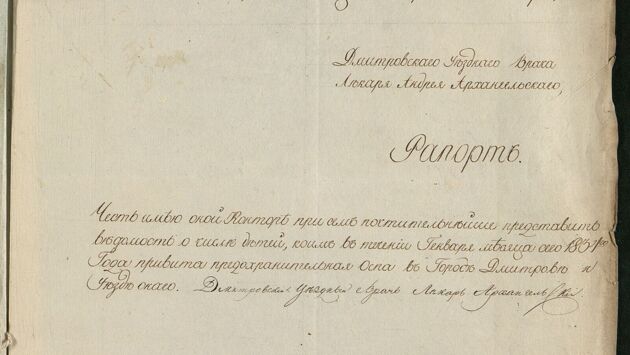 Дмитровскаго Уѣзднаго Врача
Лѣкаря Андрея Архангельскаго,
Рапортъ.
Честь имѣю оной Конторѣ при семъ почтительнѣйше представить
вѣдомость о числѣ дѣтей, коимъ въ теченіи Генваря мѣсяца сего 1831го
Года привита предохранительная Оспа въ Городѣ Дмитровѣ и
Уѣздѣ онаго. Дмитровской Уѣздный Врачь Лѣкарь Архангельской.